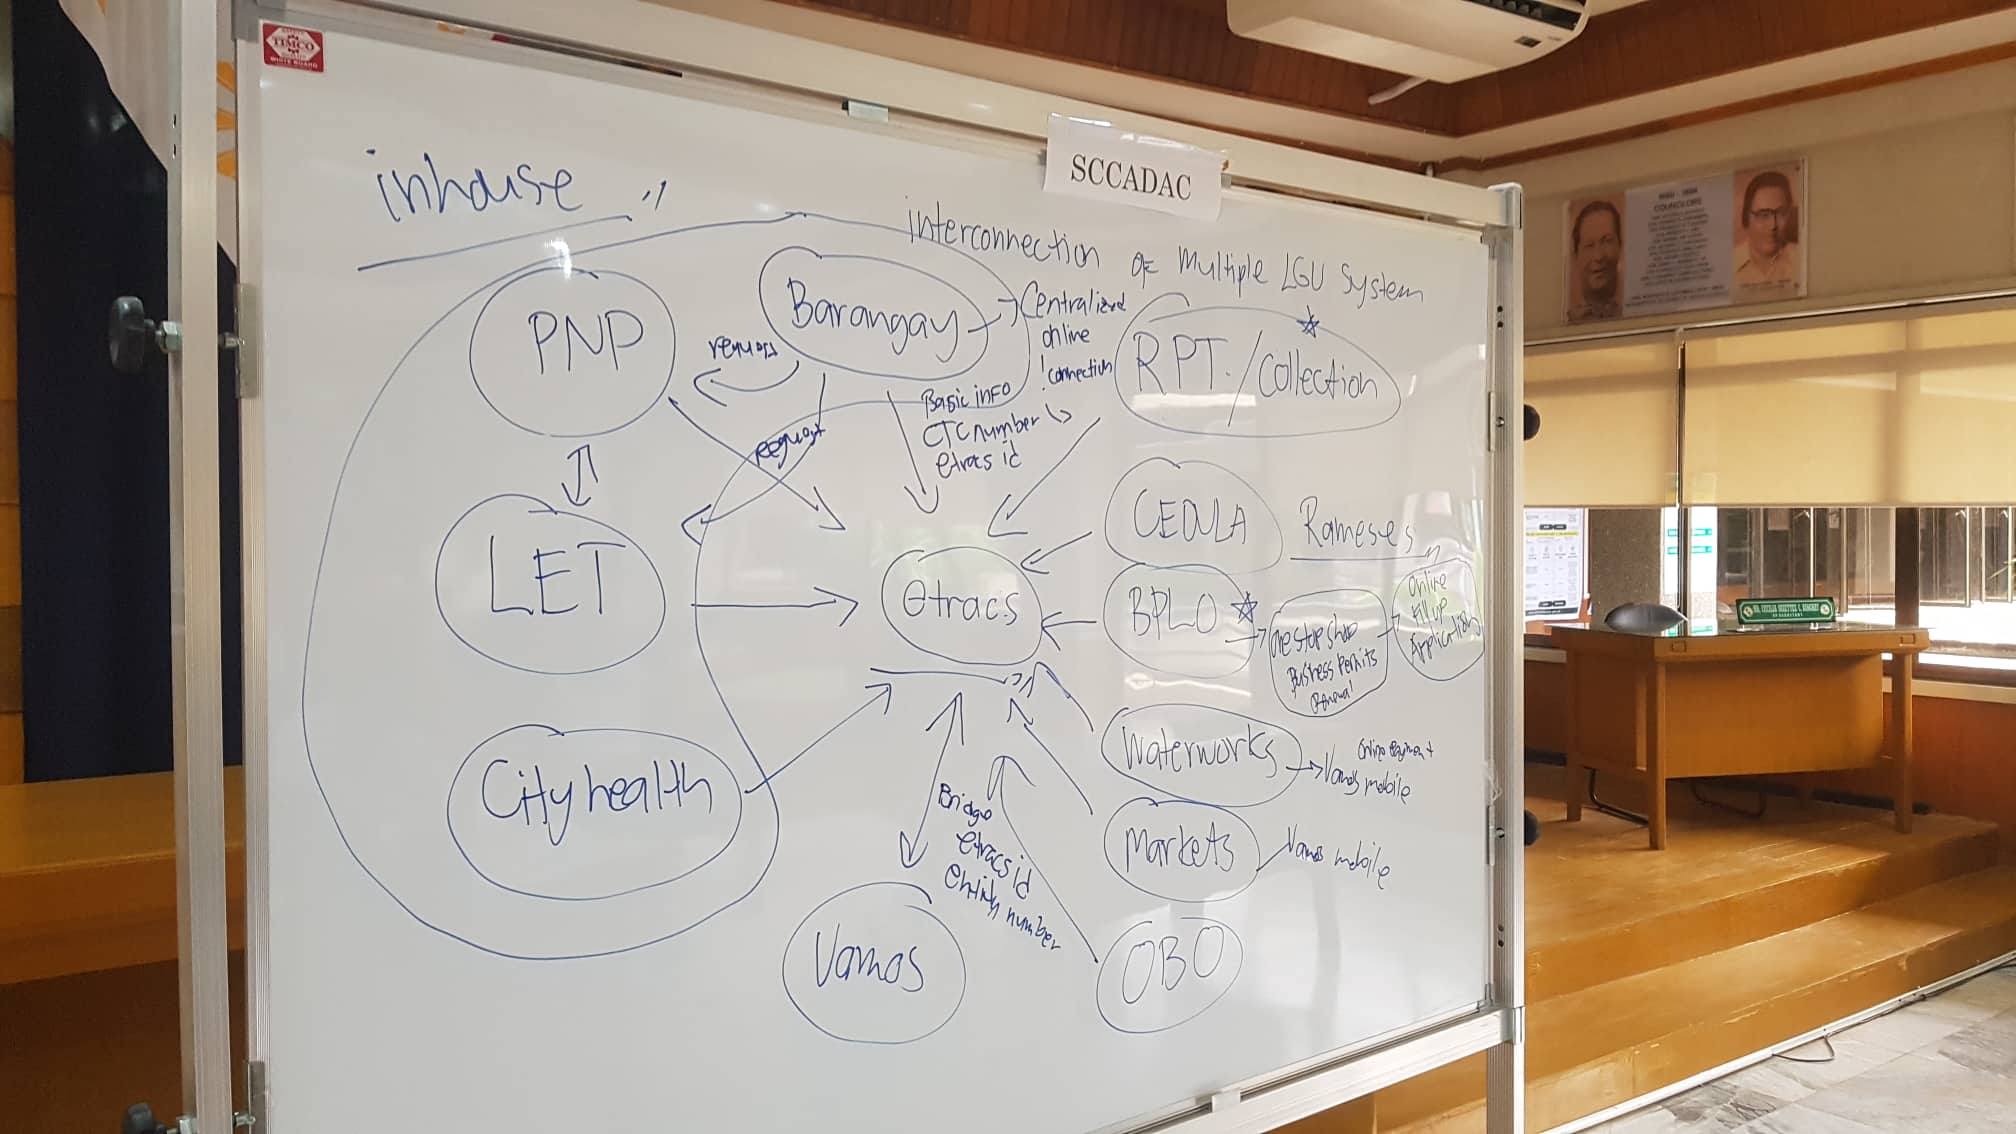 TIMCO
WHITE BOARD
SCCADAC
inhouse
interconnection of Multiple LGU System
PNP
Barangay
Centralized
online
connection
RPT. / Collection
request
request
Basic info
CTC number
etracs id
LET
etracs
CEDULA
Rameses
BPLO
One stop shop
Business Permits
Renewal
Online
Fill up
Application
City health
Waterworks
Online Payment
Vamos mobile
Markets
Vamos mobile
Bridge
etracs id
entity number
Vamos
OBO
COUNCILORS